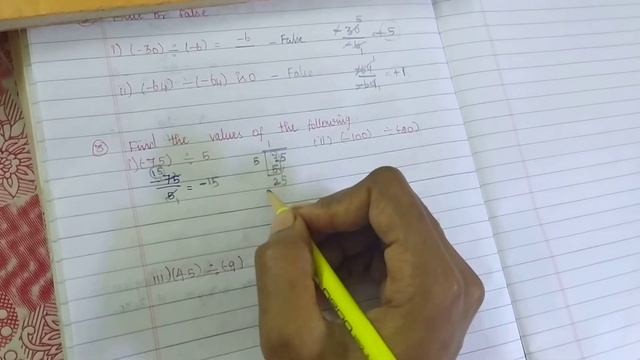 True or false
i) (-30) ÷ (-6) = -6 - False -30 5 / -6 1 = +5
ii) (-64) ÷ (-64) is 0 - False -64 1 / -64 1 = +1
8 Find the values of the following
i) (-75) ÷ 5 ii) (-100) ÷
15
-75 / 5 1 = -15
1
5 75
5
25
iii) (45) ÷ (-9)